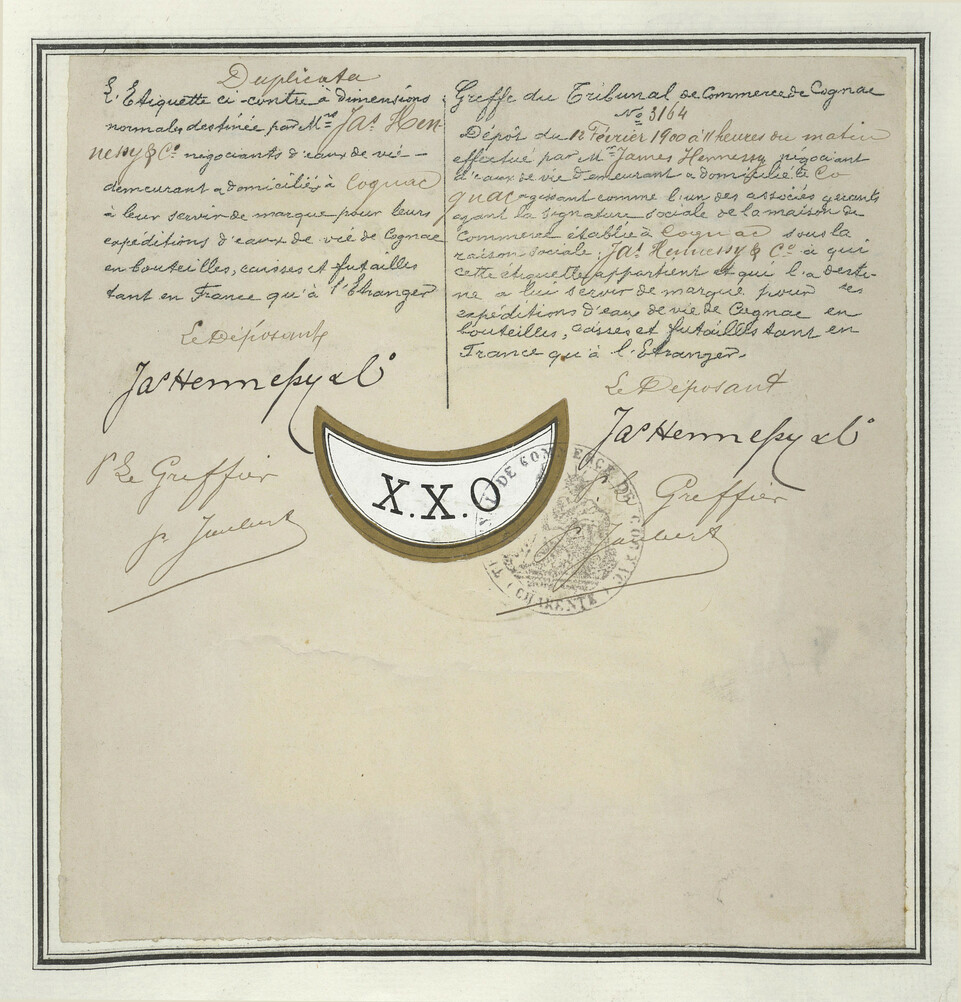 Duplicata
L'Etiquette ci-contre à dimensions
normales destinée par Mrs Jas Hen-
nessy & Co négociants d'eaux de vie -
demeurant & domiciliés à Cognac
à leur servir de marque pour leurs
expéditions d'eaux de vie de Cognac
en bouteilles, caisses et futailles
tant en France qu'à l'Etranger
Le Déposant
Jas Hennessy & Co
Pr Le Greffier
Greffe du Tribunal de Commerce de Cognac
No 3164
Dépôt du 12 Février 1900 à 11 heures du matin
effectué par Mr James Hennessy négociant
d'eaux de vie demeurant & domicilié à Co
gnac agissant comme l'un des associés gérants
ayant la signature sociale de la maison de
Commerce établie à Cognac sous la
raison sociale: Jas Hennessy & Co à qui
cette étiquette appartient et qui l'a desti-
né a lui servir de marque pour ses
expéditions d'eaux de vie de Cognac en
bouteilles, caisses et futailles tant en
France qu'à l'Etranger.
Le Déposant
Jas Hennessy & Co
Greffier
X.X.O
COMMERCE DE COGNAC
CHARENTE